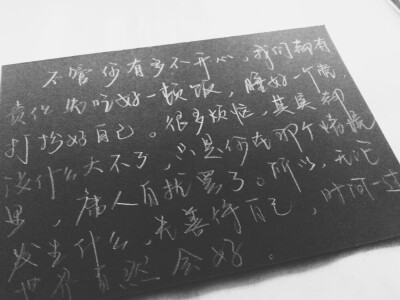 不管你有多不开心，我们都有
责任去吃好一顿饭，睡好一个觉，
打扮好自己。很多烦恼，其实都
没什么大不了，只是你在那个情境
里，庸人自扰罢了。所以，无论
发生什么，先善待自己，时间一过
世界自然会好。